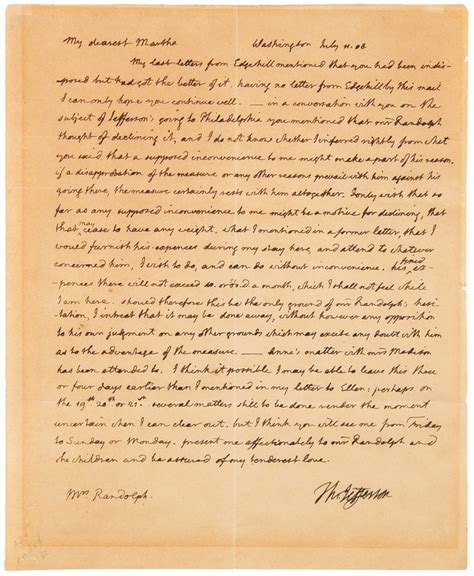 My dearest Martha Washington July 11. 08
My last letters from Edgehill mentioned that you had been indis-
posed but had got the better of it. having no letter from Edgehill by this mail
I can only hope you continue well. — in a conversation with you on the
subject of Jefferson's going to Philadelphia you mentioned that mr Randolph
thought of declining it, and I do not know whether I inferred rightly from what
you said that a supposed inconvenience to me might make a part of his reason.
if a disapprobation of the measure or any other reasons prevail with him against his
going there, the measure certainly rests with him altogether. I only wish that so
far as any supposed inconvenience to me might be a motive for declining, that
that may cease to have any weight. what I mentioned in a former letter, that I
would furnish his expences during my stay here, and attend to whatever
concerned him, I wish to do, and can do without inconvenience. his ex-
pences there will not exceed a month, which I shall not feel while
I am here. should therefore this be the only ground of mr Randolph's hesi-
tation, I intreat that it may be done away, without however any opposition
to his own judgment on any other grounds which may excite any doubt with him
as to the advantage of the measure. — Anne's matter with mrs Madison
has been attended to. I think it possible I may be able to leave this three
or four days earlier than I mentioned in my letter to Ellen: perhaps on
the 19th 20th or 21st. several matters still to be done render the moment
uncertain when I can clear out, but I think you will see me from Friday
to Sunday or Monday. present me affectionately to mr Randolph and
the children and be assured of my tenderest love.
Mrs Randolph. Th: Jefferson